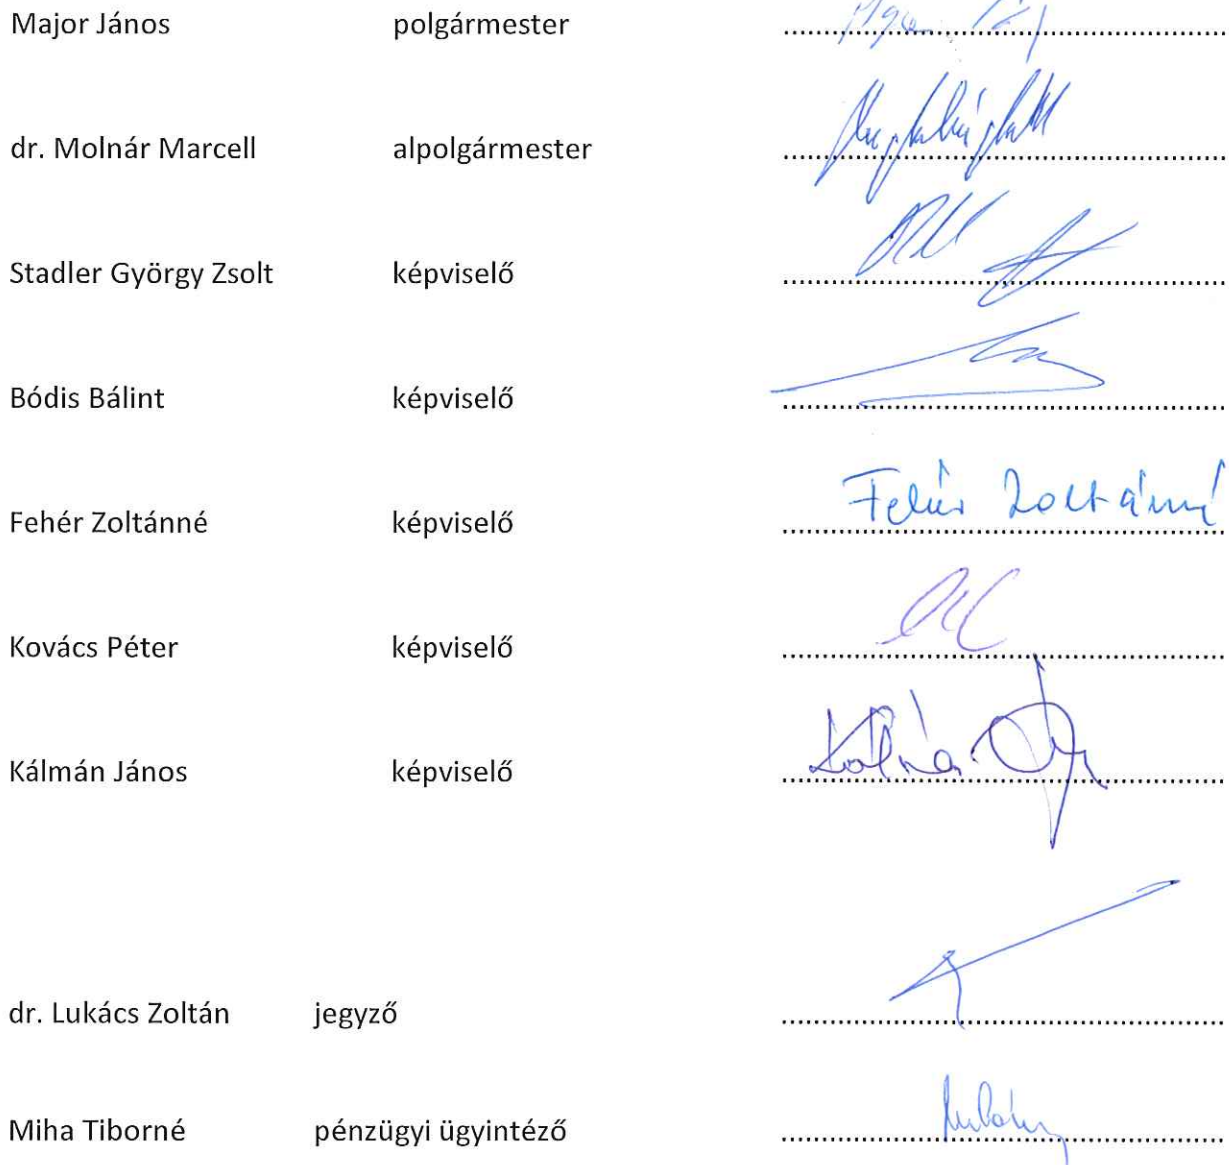 Major János polgármester
dr. Molnár Marcell alpolgármester
Stadler György Zsolt képviselő
Bódis Bálint képviselő
Fehér Zoltánné képviselő Fehér Zoltánné
Kovács Péter képviselő
Kálmán János képviselő
dr. Lukács Zoltán jegyző
Miha Tiborné pénzügyi ügyintéző